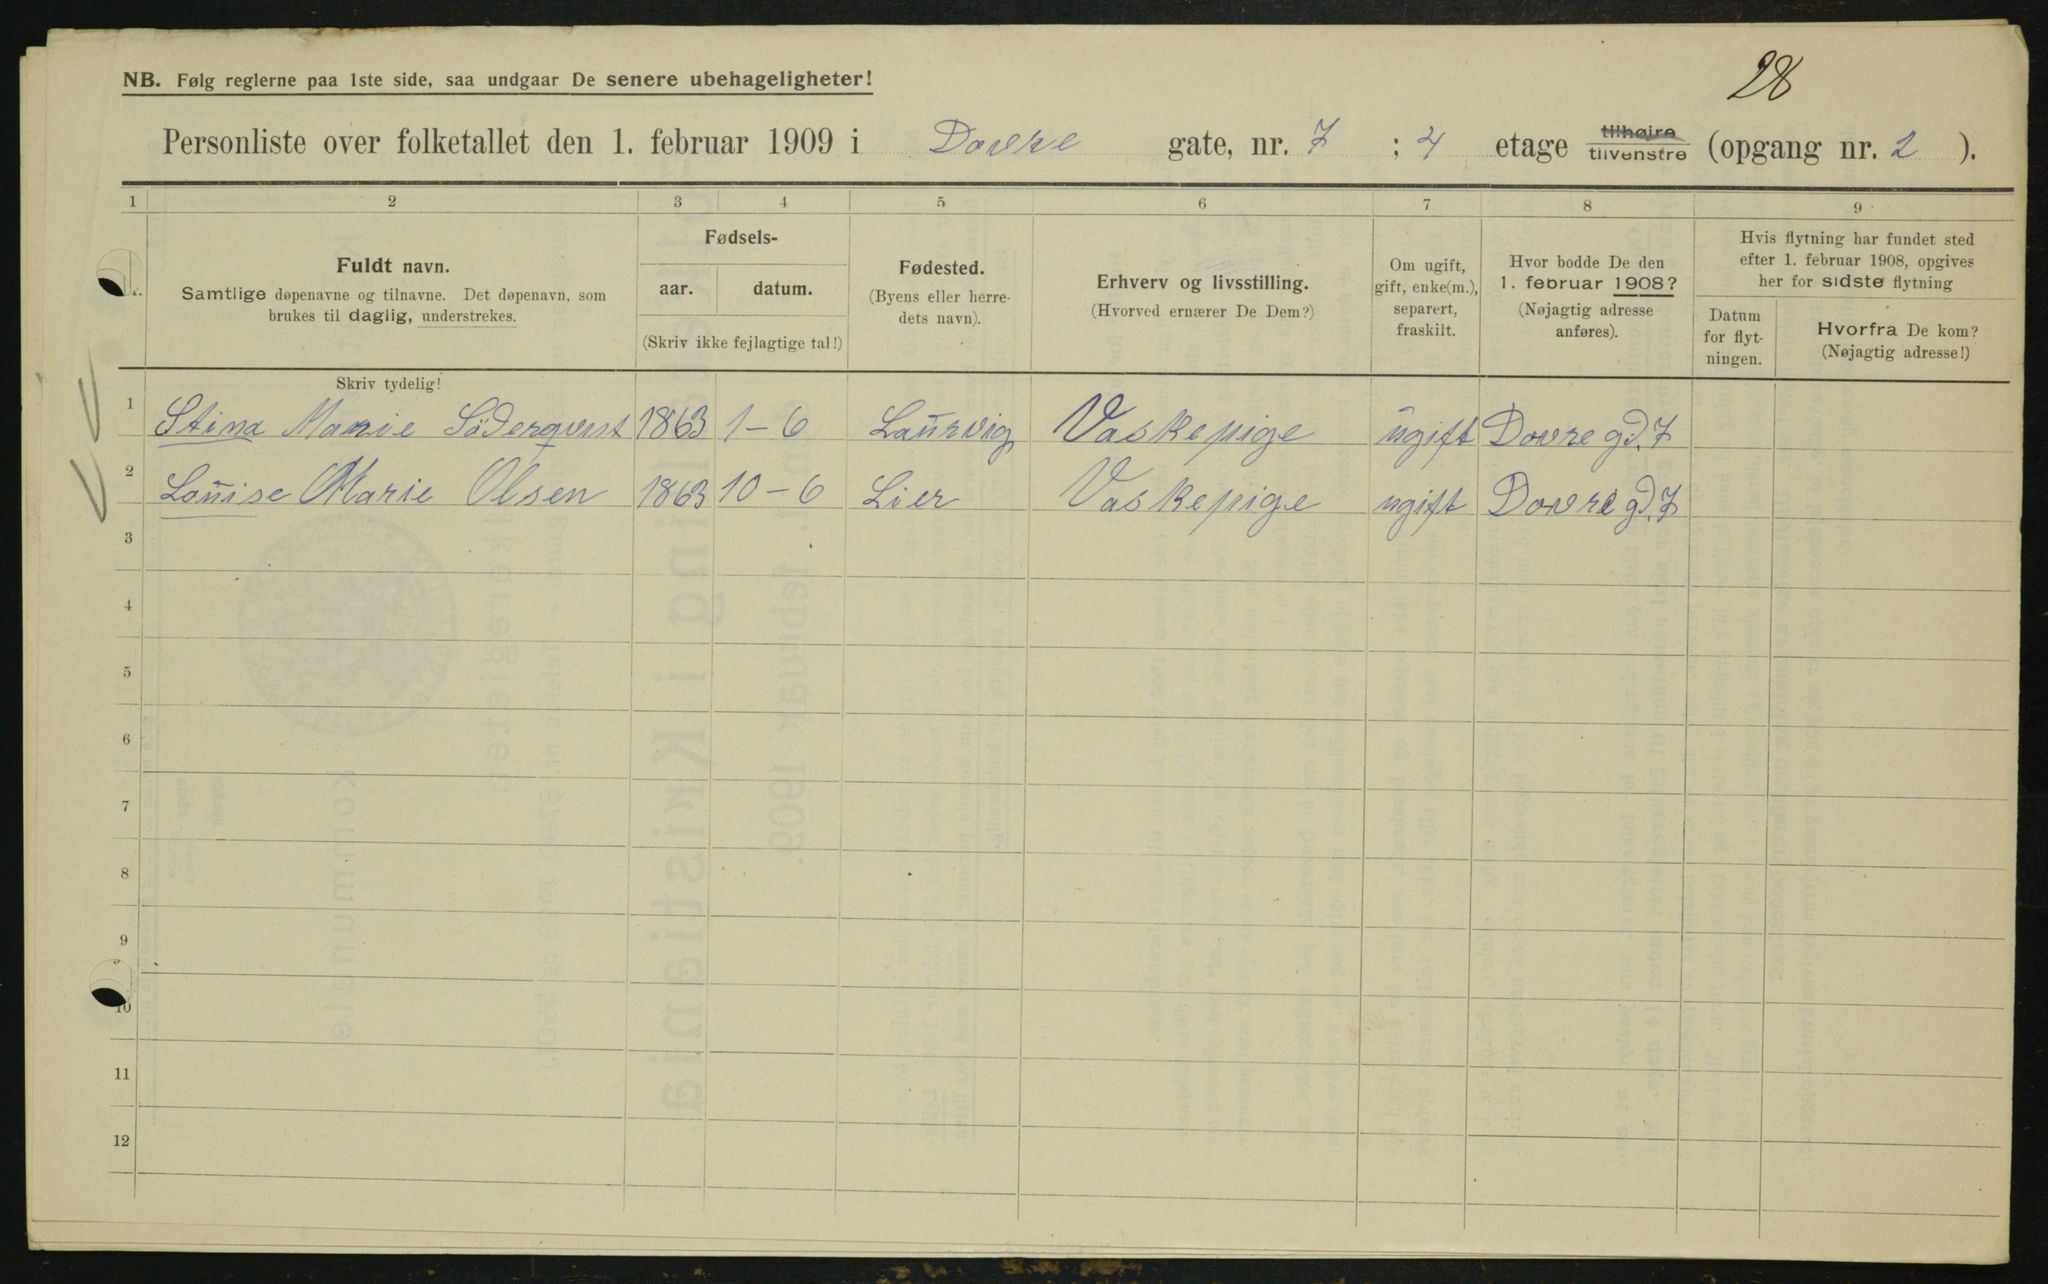 28
NB. Følg reglerne paa 1ste side, saa undgaar De senere ubehageligheter!
Personliste over folketallet den 1. februar 1909 i Dovre gate, nr. 7 ; 4 etage tilhøire tilvenstre (opgang nr. 2 ).
1 2 3 4 5 6 7 8 9
Fuldt navn.
Samtlige døpenavne og tilnavne. Det døpenavn, som
brukes til daglig, understrekes.
Fødsels-
aar. datum.
(Skriv ikke fejlagtige tal!)
Fødested.
(Byens eller herre-
dets navn).
Erhverv og livsstilling.
(Hvorved ernærer De Dem?)
Om ugift,
gift, enke(m.),
separert,
fraskilt.
Hvor bodde De den
1. februar 1908?
(Nøjagtig adresse
anføres).
Hvis flytning har fundet sted
efter 1. februar 1908, opgives
her for sidste flytning
Datum
for flyt-
ningen.
Hvorfra De kom?
(Nøjagtig adresse!)
Skriv tydelig!
1 Stina Marie Söderqvist 1863 1-6 Laurvig Vaskepige ugift Dovre gd. 7
2 Louise Marie Olsen 1863 10-6 Lier Vaskepige ugift Dovre gd. 7
3
4
5
6
7
8
9
10
11
12